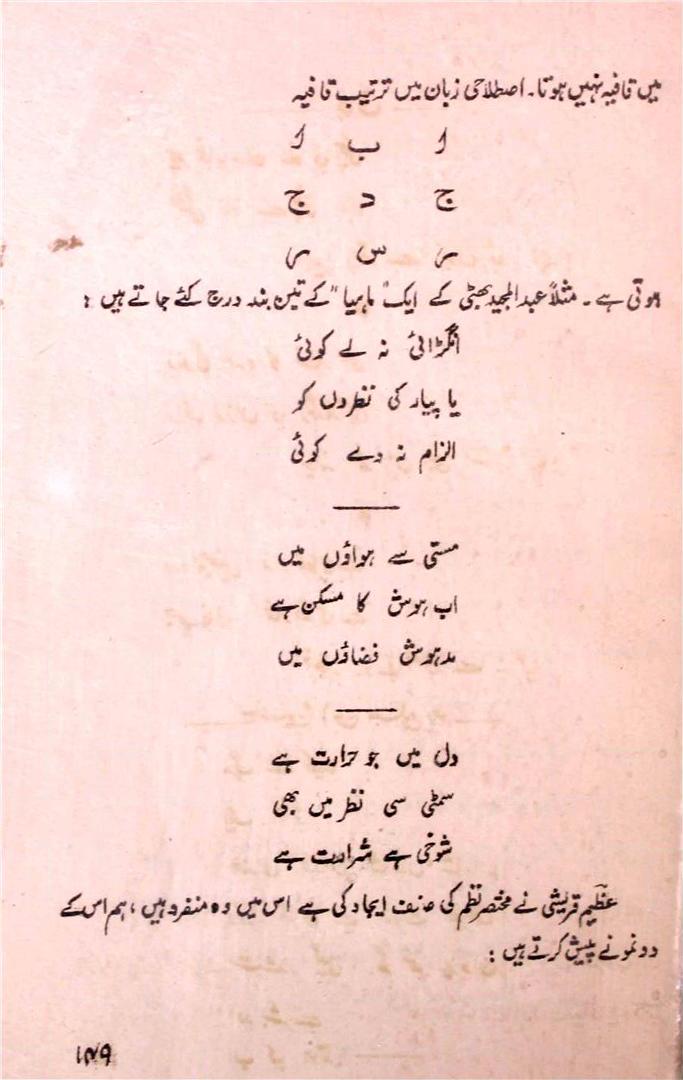 میں قافیہ نہیں ہوتا۔ اصطلاحی زبان میں ترتیب قافیہ
ا ب ا
ج د ج
س س س
ہوتی ہے۔ مثلاً عبدالمجید بھٹی کے ایک "ماہیا" کے تین بند درج کئے جاتے ہیں :
انگڑائی نہ لے کوئی
یا پیار کی نظردں کو
الزام نہ دے کوئی
مستی سے ہواؤں میں
اب ہوش کا مسکن ہے
مدہوش فضاؤں میں
دل میں جو حرارت ہے
سمٹی سی نظر میں بھی
شوخی ہے شرارت ہے
عظیم قریشی نے مختصر نظم کی صنف ایجاد کی ہے اس میں وہ منفرد ہیں، ہم اس کے
دو نمونے پیش کرتے ہیں :